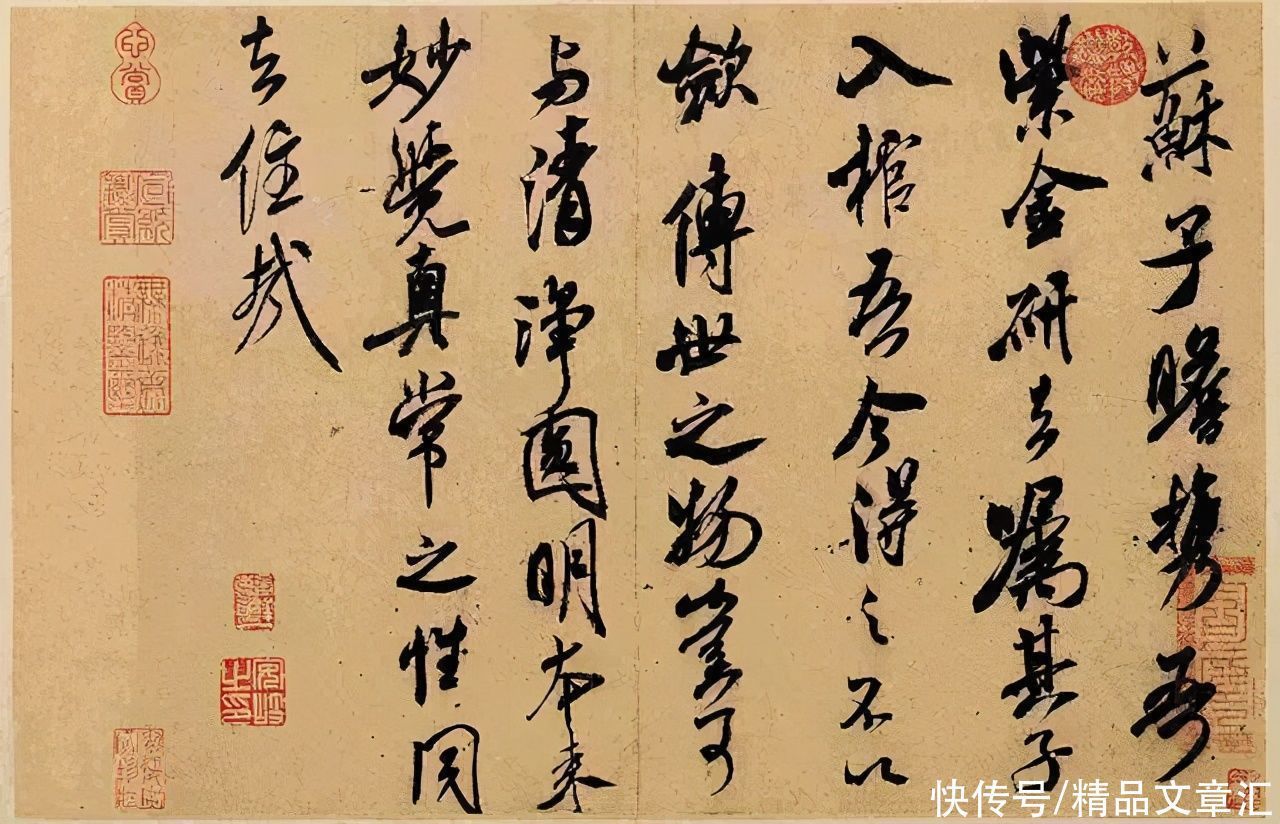 蘇子瞻携吾
紫金研去嘱其子
入棺吾今得之不以
斂傳世之物豈可
与清淨圓明本来
妙覺真常之性同
去住哉
快传号/精品文章汇